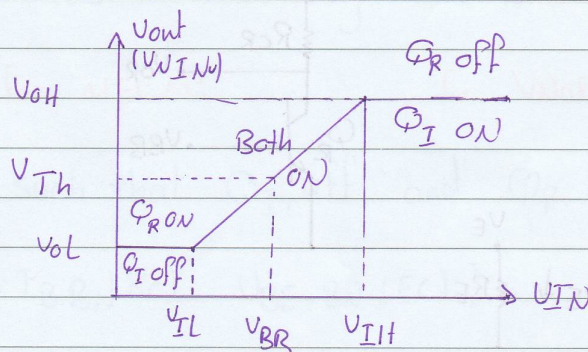 Vout
(VNINV)
QR off
VOH
QI ON
Both
ON
VTh
QR ON
VOL
QI off
VIN
VIL
VBR
VIH